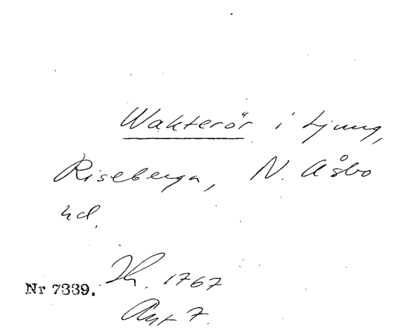 Wakterör i Ljung,
Riseberga, N. Åsbo
hd.
Nr 7339. Th. 1767
Akt 7.